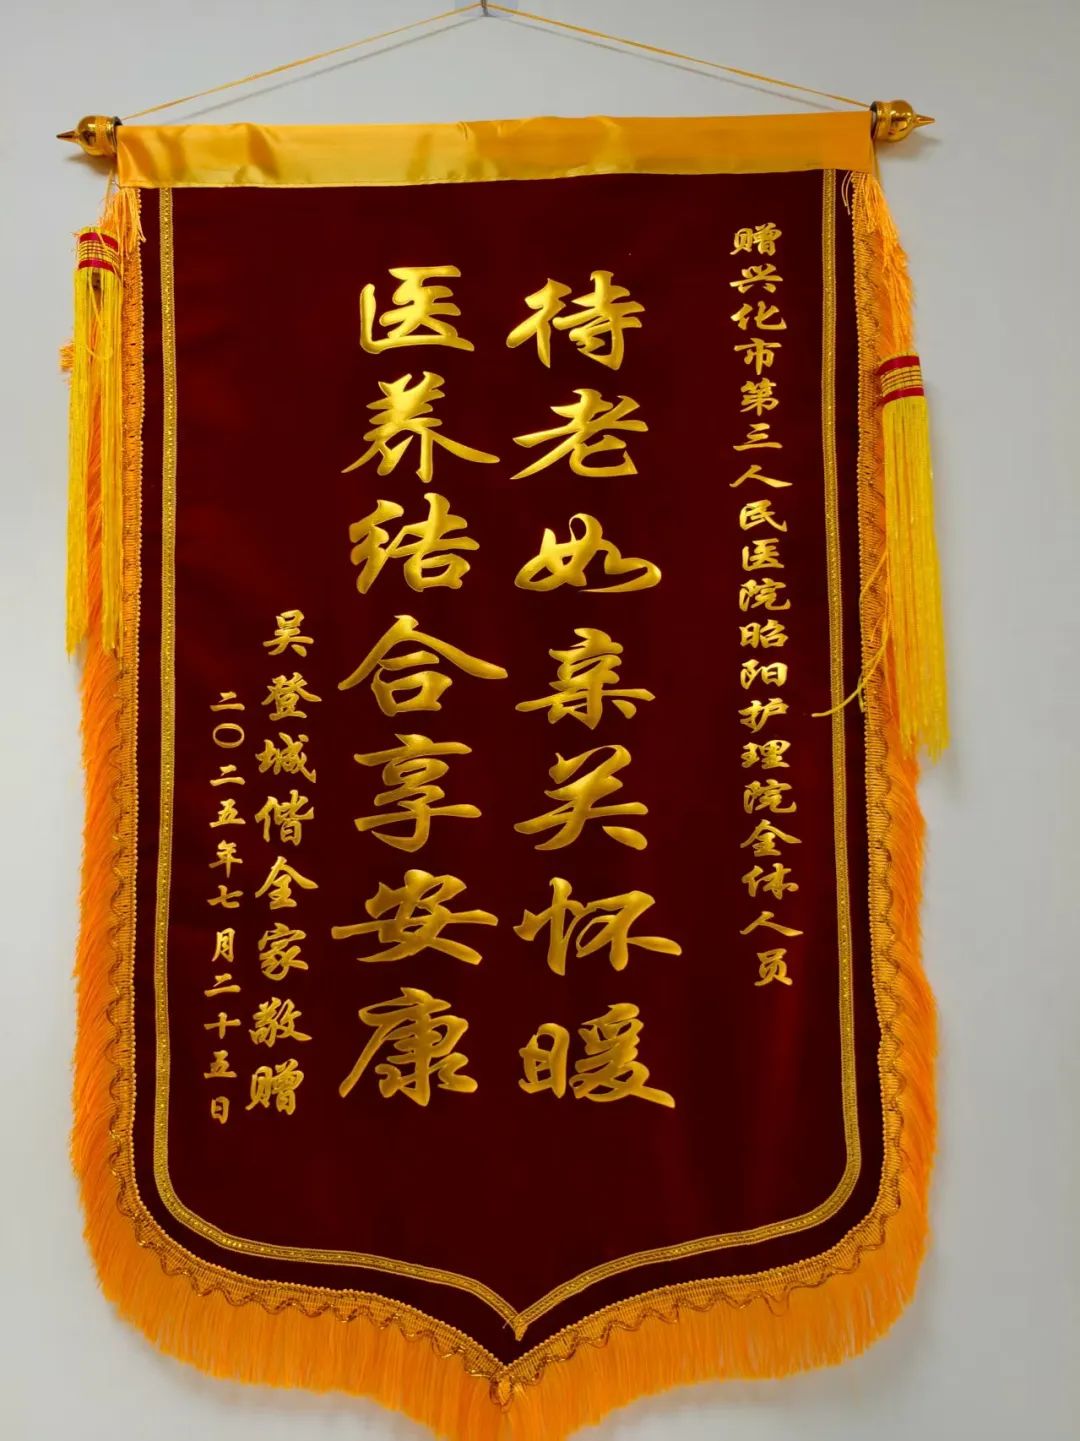 赠兴化市第三人民医院昭阳护理院全体人员
待老如亲关怀暖
医养结合享安康
吴登城偕全家敬赠
二〇二五年七月二十五日